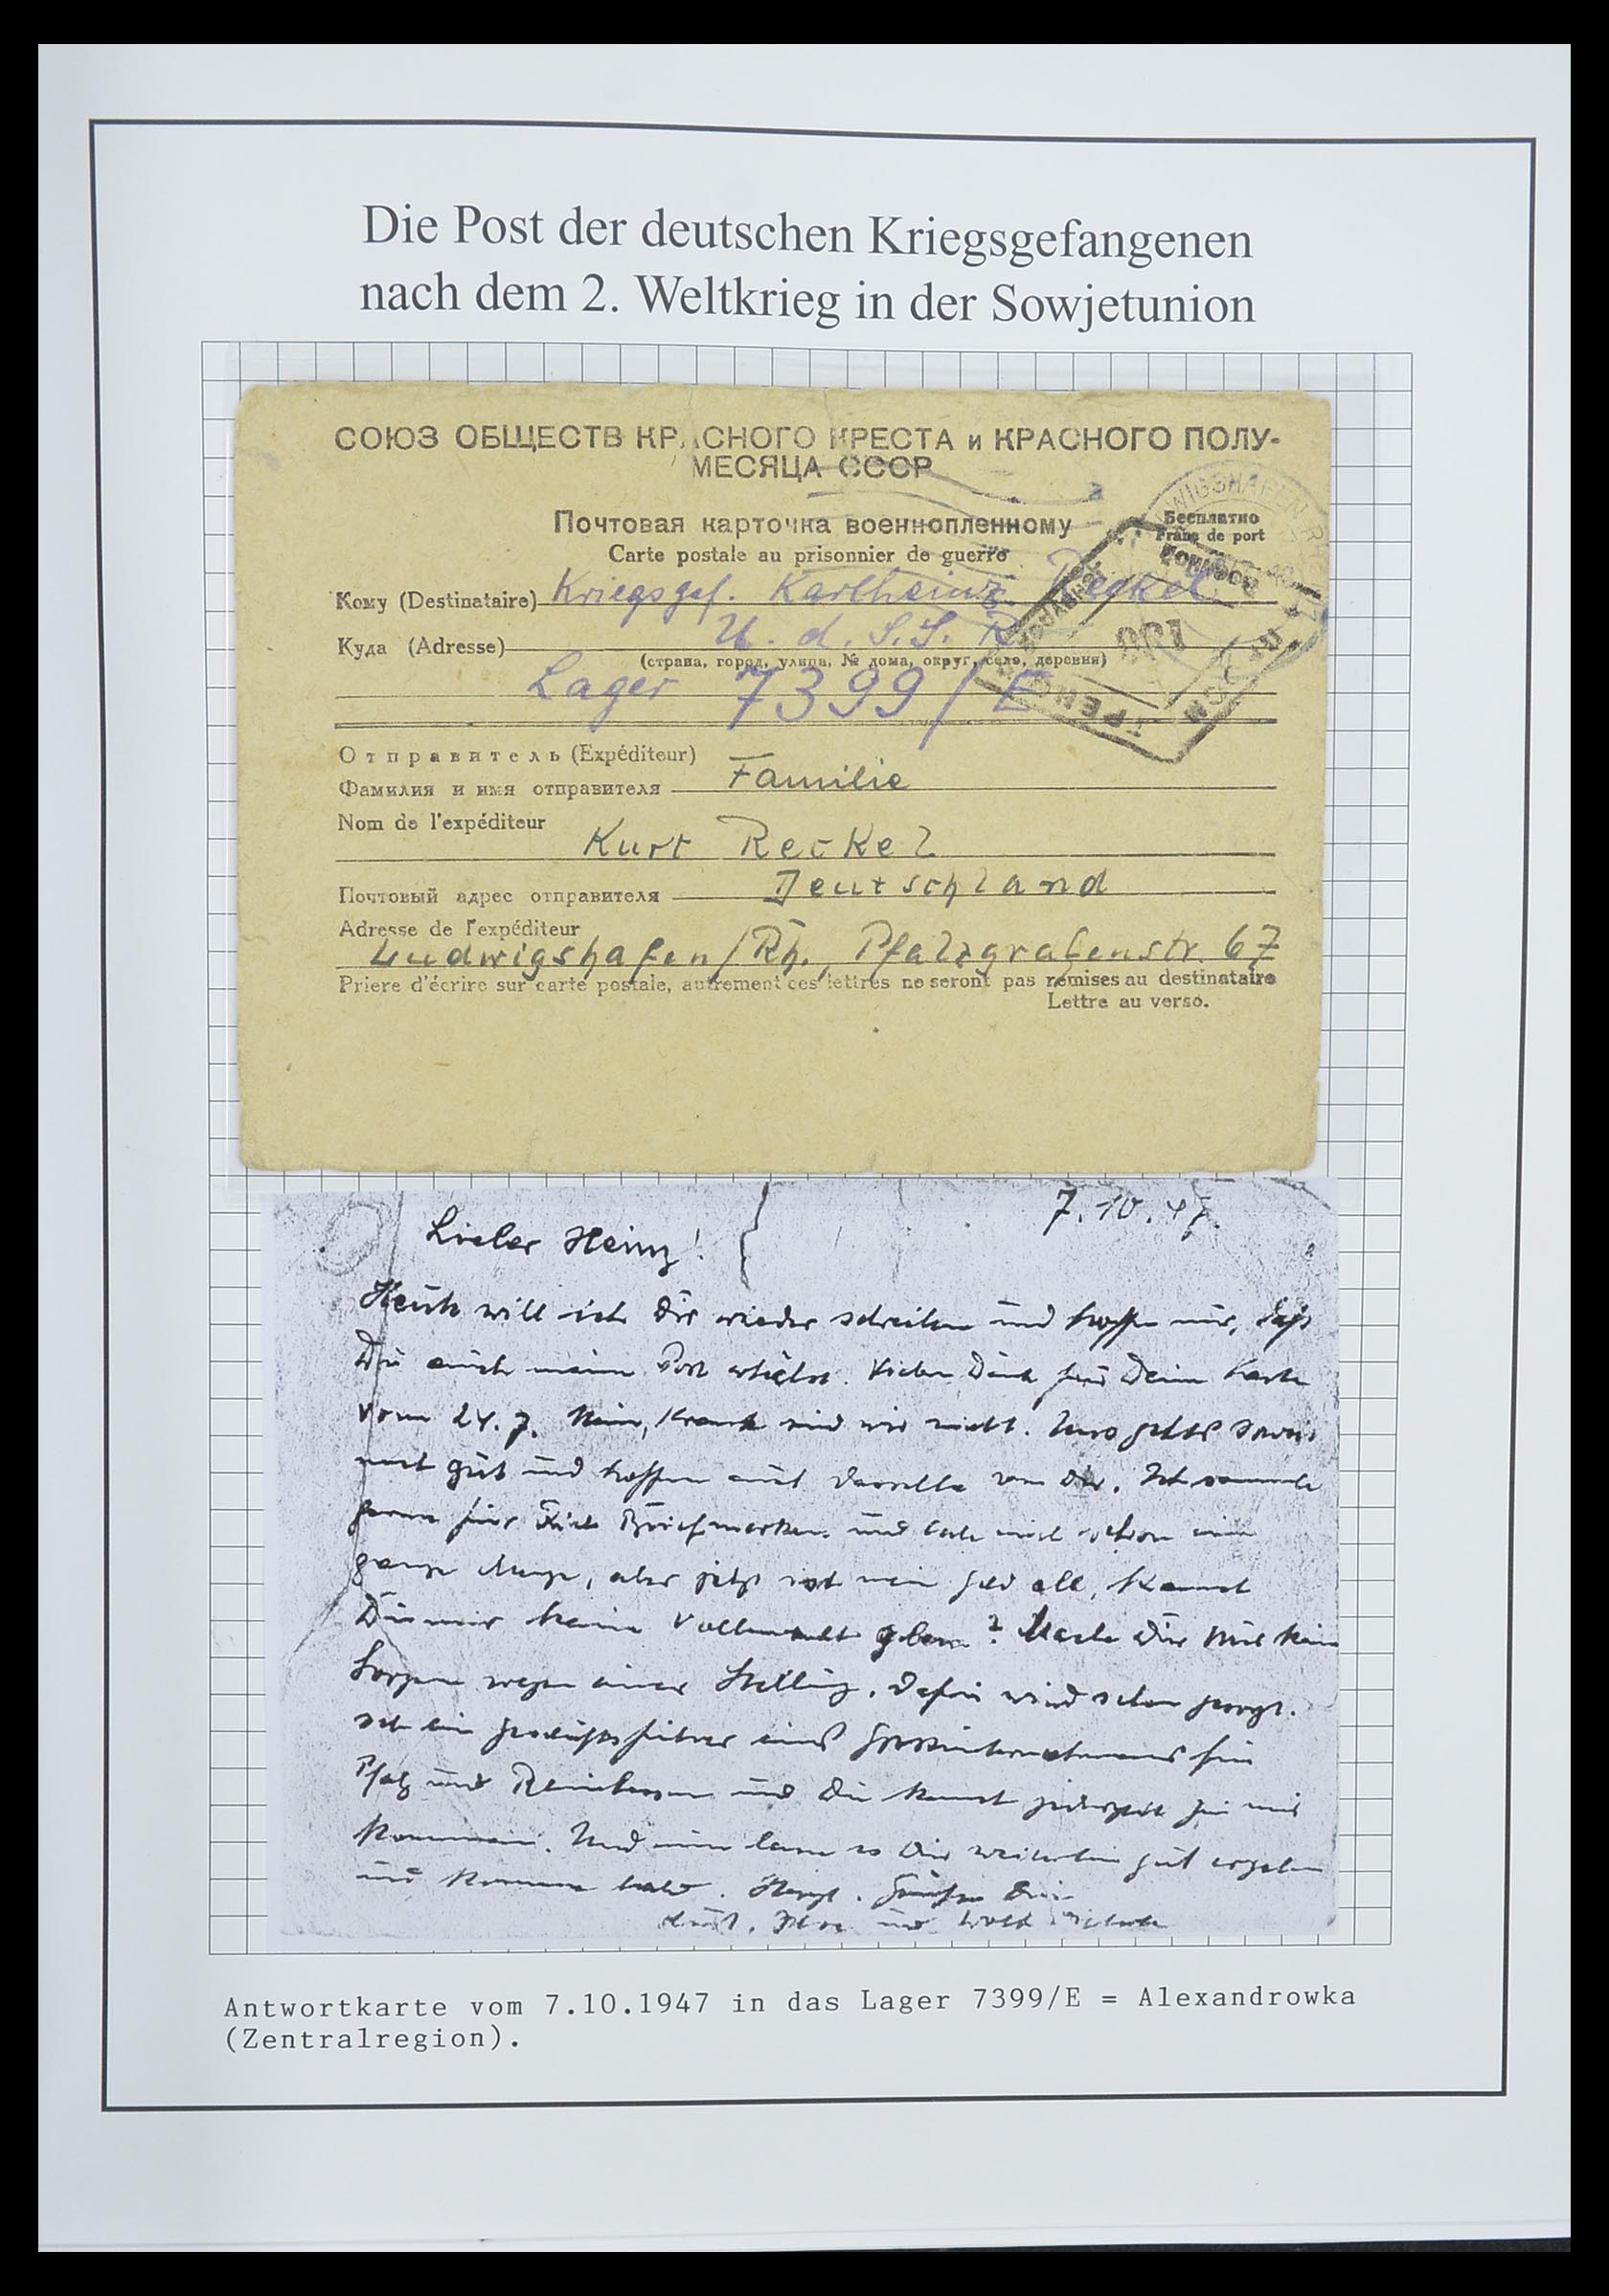 Die Post der deutschen Kriegsgefangenen
nach dem 2. Weltkrieg in der Sowjetunion
СОЮЗ ОБЩЕСТВ КРАСНОГО КРЕСТА и КРАСНОГО ПОЛУ-
МЕСЯЦА СССР
Почтовая карточка военнопленному
Carte postale au prisonnier de guerre
Бесплатно
Franc de port
Кому (Destinataire) Kriegsgef. Karlheinz Reckel
Куда (Adresse) U. d. S. S. R.
(страна, город, улица, № дома, округ, село, деревня)
Lager 7399/E
Отправитель (Expéditeur)
Фамилия и имя отправителя Familie
Nom de l'expéditeur
Kurt Reckel
Почтовый адрес отправителя Deutschland
Adresse de l'expéditeur
Ludwigshafen/Rh., Pfalzgrafenstr. 67
Priere d'écrire sur carte postale, autrement ces lettres ne seront pas remises au destinataire
Lettre au verso.
7.10.47.
Lieber Heinz!
Heute will ich Dir wieder schreiben und hoffe nur, daß
Du auch meine Post erhältst. Vielen Dank für Deine Karte
vom 24.7. Nein, krank sind wir nicht. Uns geht's soweit
noch gut und hoffen auch dasselbe von Dir. Ich sammle
gerne für Dich Briefmarken und habe auch schon eine
ganze Menge, aber jetzt ist mein Geld all, kannst
Du mir keine Vollmacht geben? Mache Dir nur keine
Sorgen wegen einer Stellung. Dafür wird schon gesorgt.
Ich bin Geschäftsführer eines Grossunternehmens für
Pfalz und Rheinhessen und Du kannst jederzeit zu mir
kommen. Und nun lasse es Dir weiterhin gut ergehen
und komme bald. Herzl. Grüße Dein
Antwortkarte vom 7.10.1947 in das Lager 7399/E = Alexandrowka
(Zentralregion).